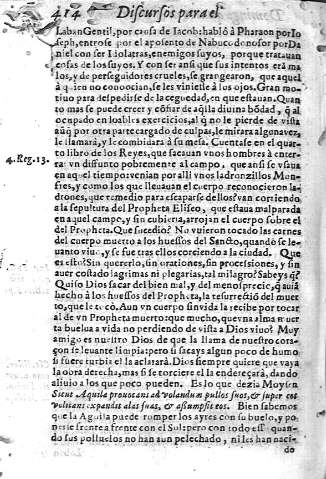 414 Discursos para el
Laban Gentil, por causa de Iacob: habló à Pharaon por Io
seph, entrose por el aposento de Nabucodonosor por Da
niel con ser Idolatras, enemigos suyos, porque tratauan
cosas de los suyos. Y con ser ansi que sus intentos erā ma
los, y de perseguidores crueles, se grangearon, que aquel
à quien no conocian, se les viniesse à los ojos. Gran mo
tiuo para despedirse de la ceguedad, en que estauan. Quan
to mas se puede creer y cōfiar de aq̃lla diuina bōdad, q̃ al
ocupado en loables exercicios, al q̃ no le pierde de vista
aũq̃ por otra parte cargado de culpas, le mirara alguna vez,
le llamarà, y le combidarà à su mesa. Cuentase en el quar
4. Reg. 13.
to libro de los Reyes, que sacauan vnos hombres à enter
rar vn diffunto pobremente al campo, que ansi se vsaua
en aquel tiempo: venian por alli vnos ladronzillos Mon
fries, y como los que lleuauan el cuerpo reconocieron la
drones, que remedio para escaparse dellos? van corriendo
a la sepultura del Propheta Eliseo, que estaua malparada
en aquel campo, y sin cubierta, arrojan el cuerpo sobre el
del Propheta. Que sucedio? No vuieron tocado las carnes
del cuerpo muerto a los huessos del Sancto, quando se le-
uanto viuo, y se fue tras ellos corriendo a la ciudad. Que
es esto? Sin quererlo, sin oraciones, sin processiones, y sin
auer costado lagrimas ni plegarias, tal milagro? Sabeys q̃?
Quiso Dios sacar del bien mal, y del menosprecio, q̃ auiā
hecho à los huessos del Propheta, la resurrectiō del muer
to, que le tocó. Aun vn cuerpo sin vida la recibe por tocar
al de vn Propheta muerto: que mucho, que vna alma muer
ta buelua a vida no perdiendo de vista a Dios viuo? Muy
amigo es nuestro Dios de que la llama de nuestro cora-
çon se leuante limpia: pero si sacays algun poco de humo
si fuere turbia el la aclararà. Dios siempre quiere que vaya
la obra derecha, mas si se torciere el la endereçarà, dando
aliuio a los que poco pueden. Es lo que dezia Moysen
Sicut Aquila prouocans ad volandum pullos suos, & super eos
volitans expandit alas suas, & assumpsit eos. Bien sabemos
que la Aguila puede romper los ayres con su buelo, y po-
nerse frente a frente con el Sol: pero con todo esso quan-
do sus polluelos no han pelechado, ni les han naci-
do